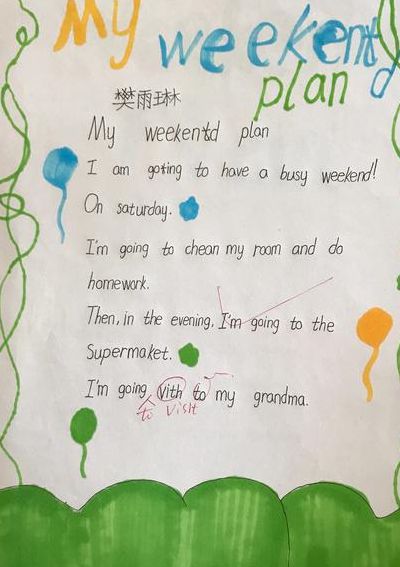 My weekentd
plan
樊雨琳
My weekentd plan
I am goting to have a busy weekend!
On saturday.
I'm going to chean my room and do
homework.
Then, in the evening, I'm going to the
Supermaket.
I'm going vith to my grandma.
to visit